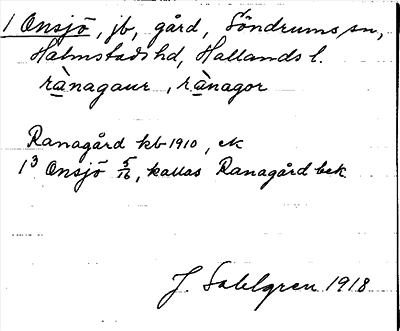 1 Onsjö, jb, gård, Söndrums sn,
Halmstads hd, Hallands l.
rànagaur, rànagor
Ranagård kb 1910, ek
1³ Onsjö 5/16, kallas Ranagård bek.
J. Sahlgren 1918